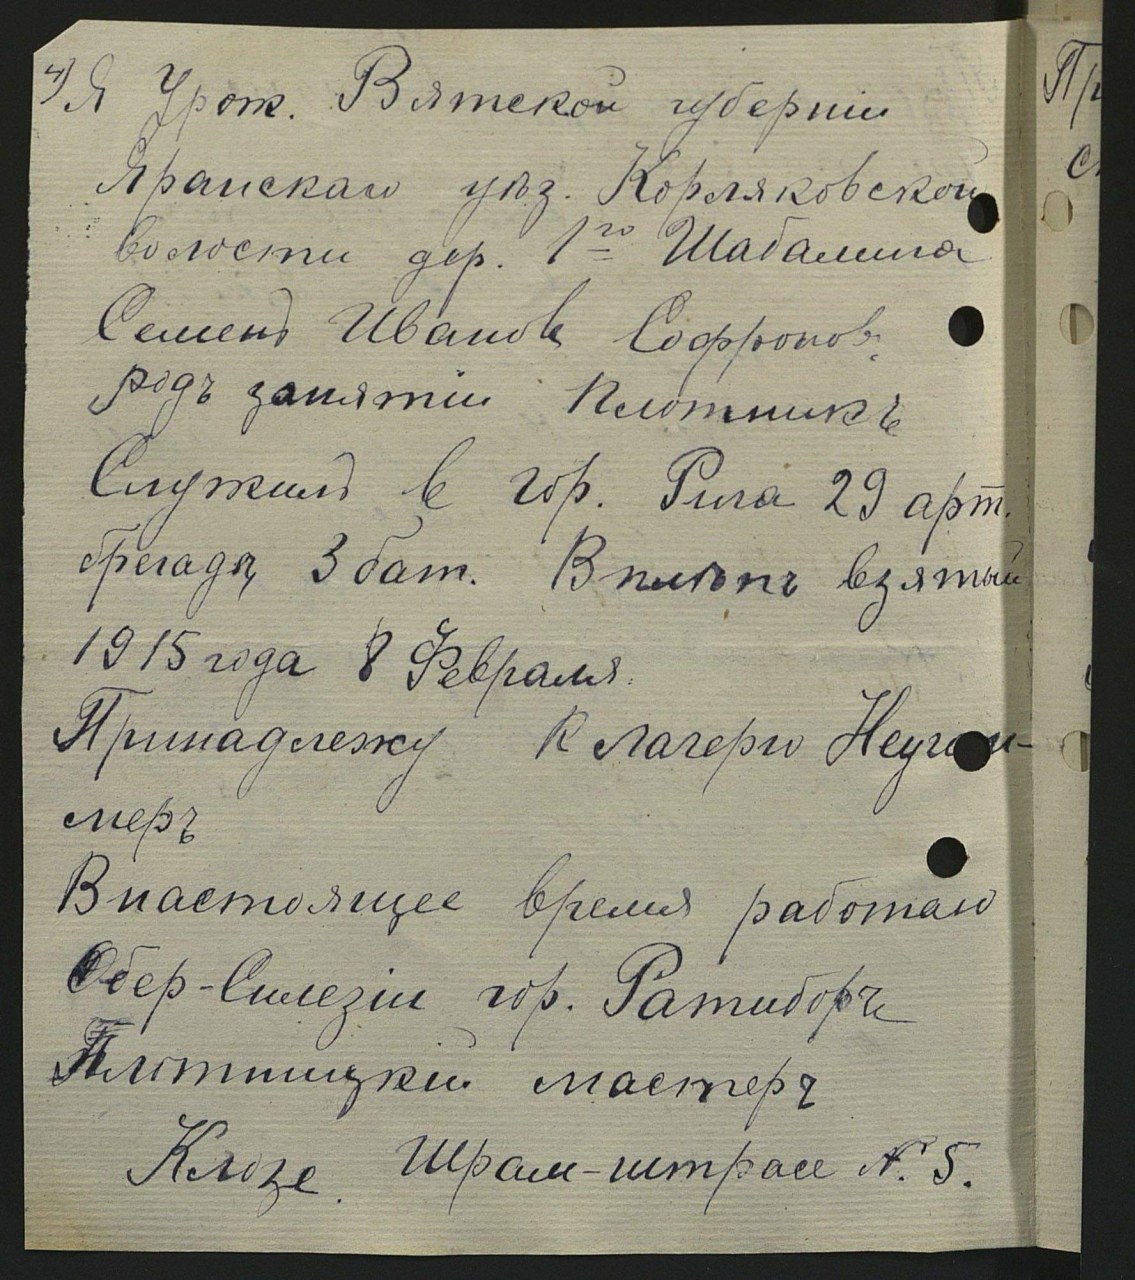 4) Я Урож. Вятской губернiи
Яранскаго уѣз. Корляковской
волости дер. 1го Шабалина
Семенъ Иванов Софронов.
родъ занятiи Плотникъ
Служилъ в гор. Рига 29 арт.
брегадѣ 3 бат. В плѣнъ взятый
1915 года 8 Февраля.
Принадлежу к лагерю
меръ
В настоящее время работаю
Обер-Силезiи гор. Ратиборъ
Плотницкiй мастеръ
Клозе. Шрам-штрасе №. 5.
Пр